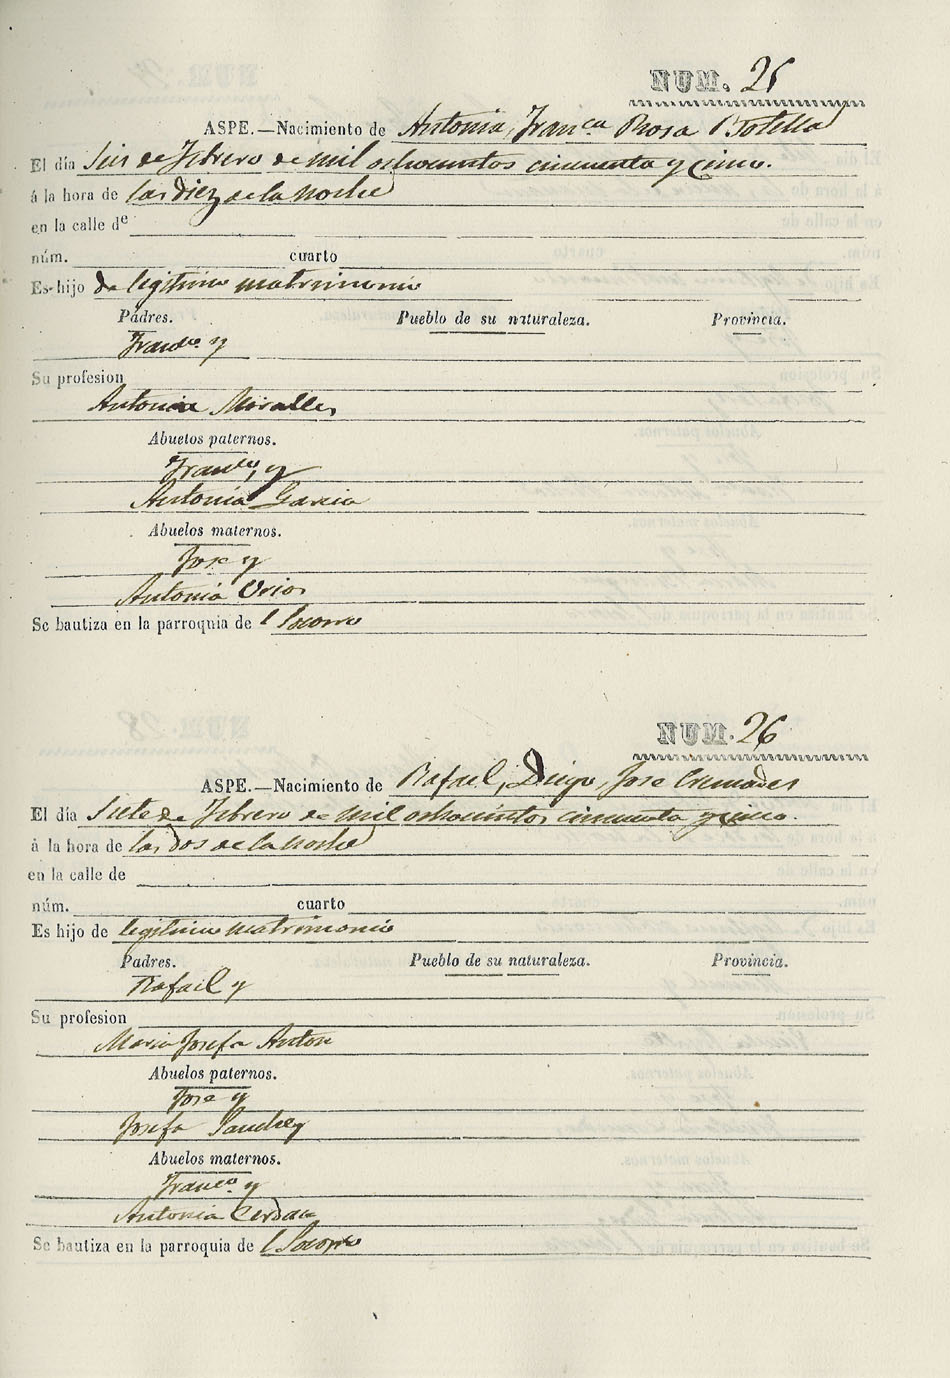 NUM. 25
ASPE.—Nacimiento de Antonia, Fran.ca Rosa Botella
El día Seis de Febrero de mil ochocientos cincuenta y cinco.
á la hora de las diez de la noche
en la calle de
núm. cuarto
Es hijo de legitimo matrimonio
Padres. Pueblo de su naturaleza. Provincia.
Franco. y
Su profesion
Antonia Miralles
Abuelos paternos.
Franco, y
Antonia Garcia
Abuelos maternos.
Jose y
Antonia Urios
Se bautiza en la parroquia de l Socorro
NUM. 26
ASPE.—Nacimiento de Rafael, Diego, Jose Cremades
El día Siete de Febrero de mil ochocientos cincuenta y cinco.
á la hora de las dos de la noche
en la calle de
núm. cuarto
Es hijo de legitimo matrimonio
Padres. Pueblo de su naturaleza. Provincia.
Rafael y
Su profesion
Maria Josefa Anton
Abuelos paternos.
Jose y
Josefa Sanchez
Abuelos maternos.
Franco. y
Antonia Cerdan
Se bautiza en la parroquia de l Socorro